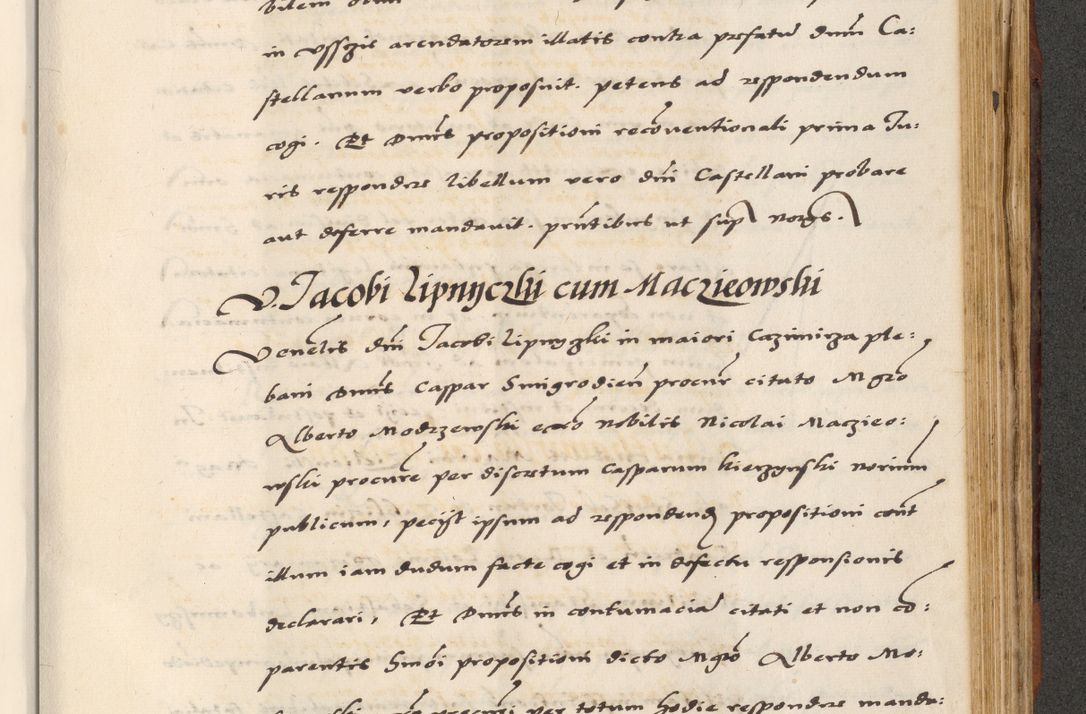 in Vssgie arendatorem illatis contra prefatu dnm Ca:
stellanum verbo proposuit. petens ad respondendum
cogi. Et Dnus propositioni reconventionali prima Ju:
ris respondere libellum vero dni Castellani probare
aut deferre mandavit. pntibus ut sup noris.
V. Jacobi Lipnyczkii cum Maczieowski
Venelis dni Jacobi Lipnyczki in maiori Cazimirza ple:
bani Dnus Caspar Smigrodien procur citato Mgro
Alberto Modrzewski ex nobilis Nicolai Maczieo:
wski procure per discretum Casparum kierzynski norium
publicum, peciit ipsum ad respondend propositioni cont
illum iam dudum facte cogi et in defectu responsionis
declarari, Et Dnus in contumacia citati et non co:
parentis Smoi propositioni dicto Mgro Alberto Mo:
procuri per totum hodie respondere manda: